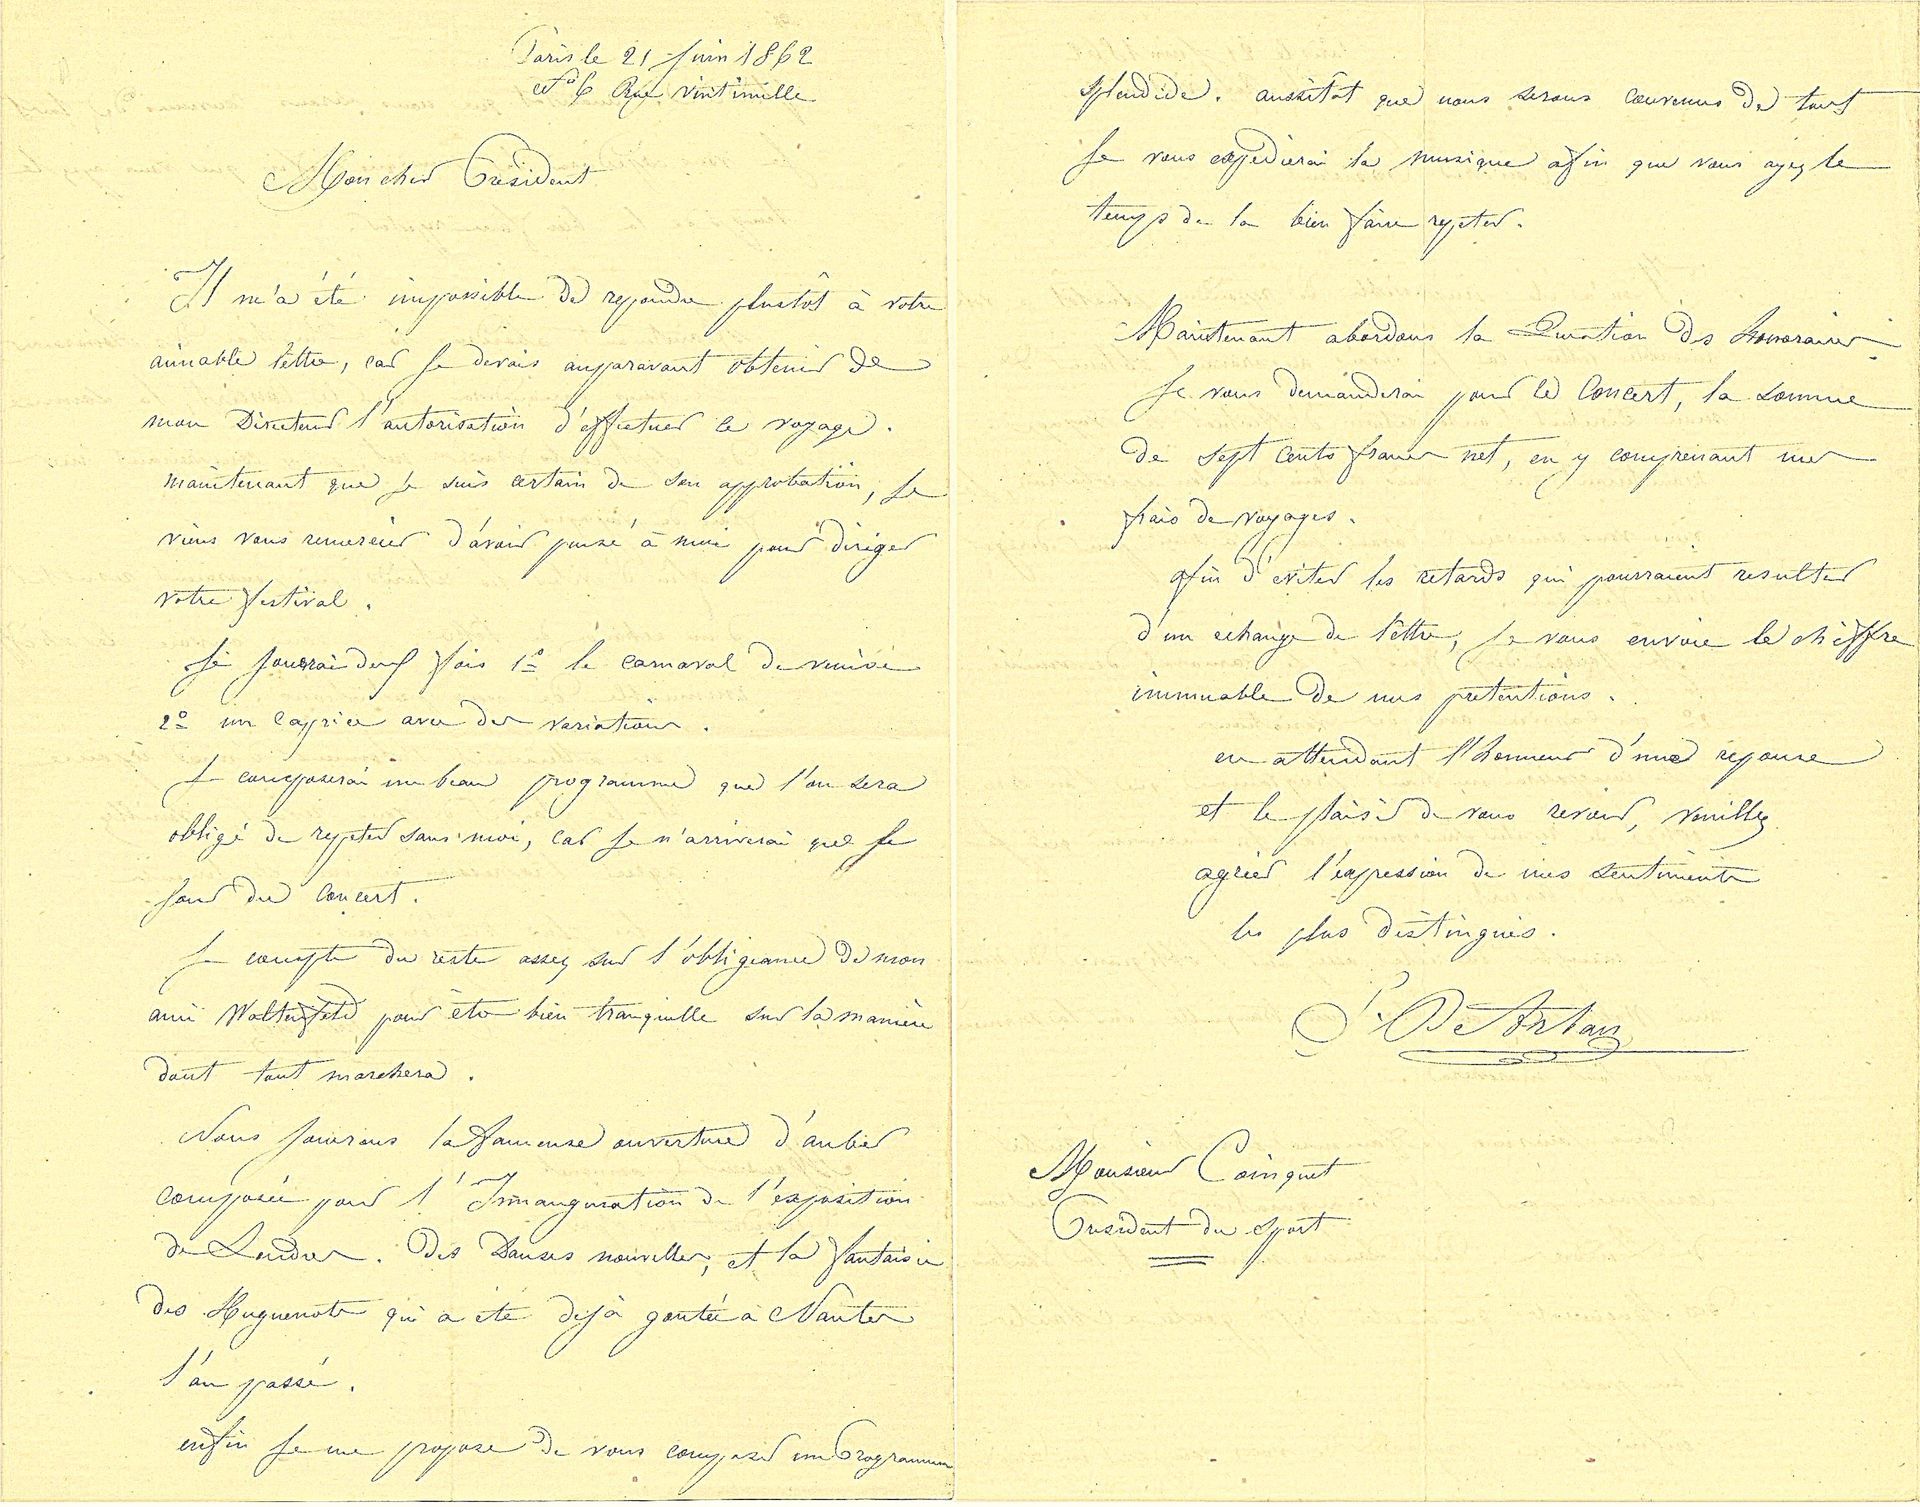 Paris le 21 Juin 1862
Nº 6 Rue Vintimille
Mon cher Président
Il m'a été impossible de repondre plustôt à votre
aimable lettre, car je devais auparavant obtenir de
mon Directeur l'autorisation d'effectuer ce voyage.
maintenant que je suis certain de son approbation, je
viens vous remercier d'avoir pensé à moi pour diriger
votre festival.
Je jouerai deux fois 1º le carnaval de venise
2º un caprice avec des variations.
Je composerai un beau programme que l'on sera
obligé de repeter sans moi, car je n'arriverai que le
jour du concert.
Je compte du reste assez sur l'obligeance de mon
ami pour être bien tranquille sur la manière
dont tout marchera.
Nous jouerons la fameuse ouverture d'auber
composée pour l'Innauguration de l'exposition
de Londres. Des Danses nouvelles, et la fantaisie
des Huguenots qui a été déjà goutée à Nantes
l'an passé.
enfin je me propose de vous composer un Programme
splendide. aussitôt que nous serons convenus de tout
Je vous expedierai la musique afin que vous ayez le
temps de la bien faire repeter.
Maintenant abordons la Question des honoraires.
Je vous demanderai pour le Concert, la somme
de sept cents francs net, en y comprenant mes
frais de voyages.
afin d'eviter les retards qui pourraient resulter
d'un echange de lettre, je vous envoie le chiffre
immuable de mes pretentions.
en attendant l'honneur d'une reponse
et le plaisir de vous revoir, veuillez
agréer l'expression de mes sentiments
les plus distingués.
De Arban
Monsieur Coinquet
President du sport